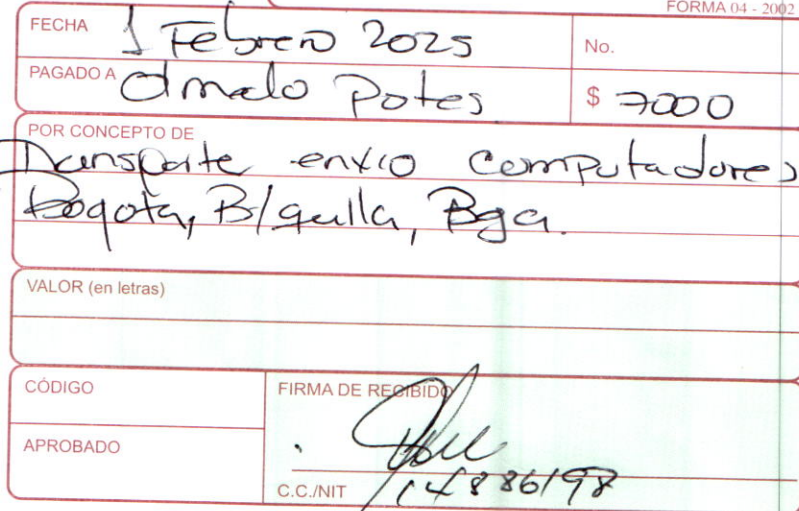 FORMA 04 - 2002
FECHA 1 Febrero 2025
No.
PAGADO A Olmedo Potes
$ 7000
POR CONCEPTO DE
Transporte envio computadores
Bogota, B/quilla, Bga.
VALOR (en letras)
CÓDIGO
FIRMA DE RECIBIDO
APROBADO
C.C./NIT 14886198